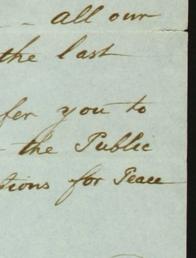 - all our
the last
fer you to
- the Public
tions for Peace